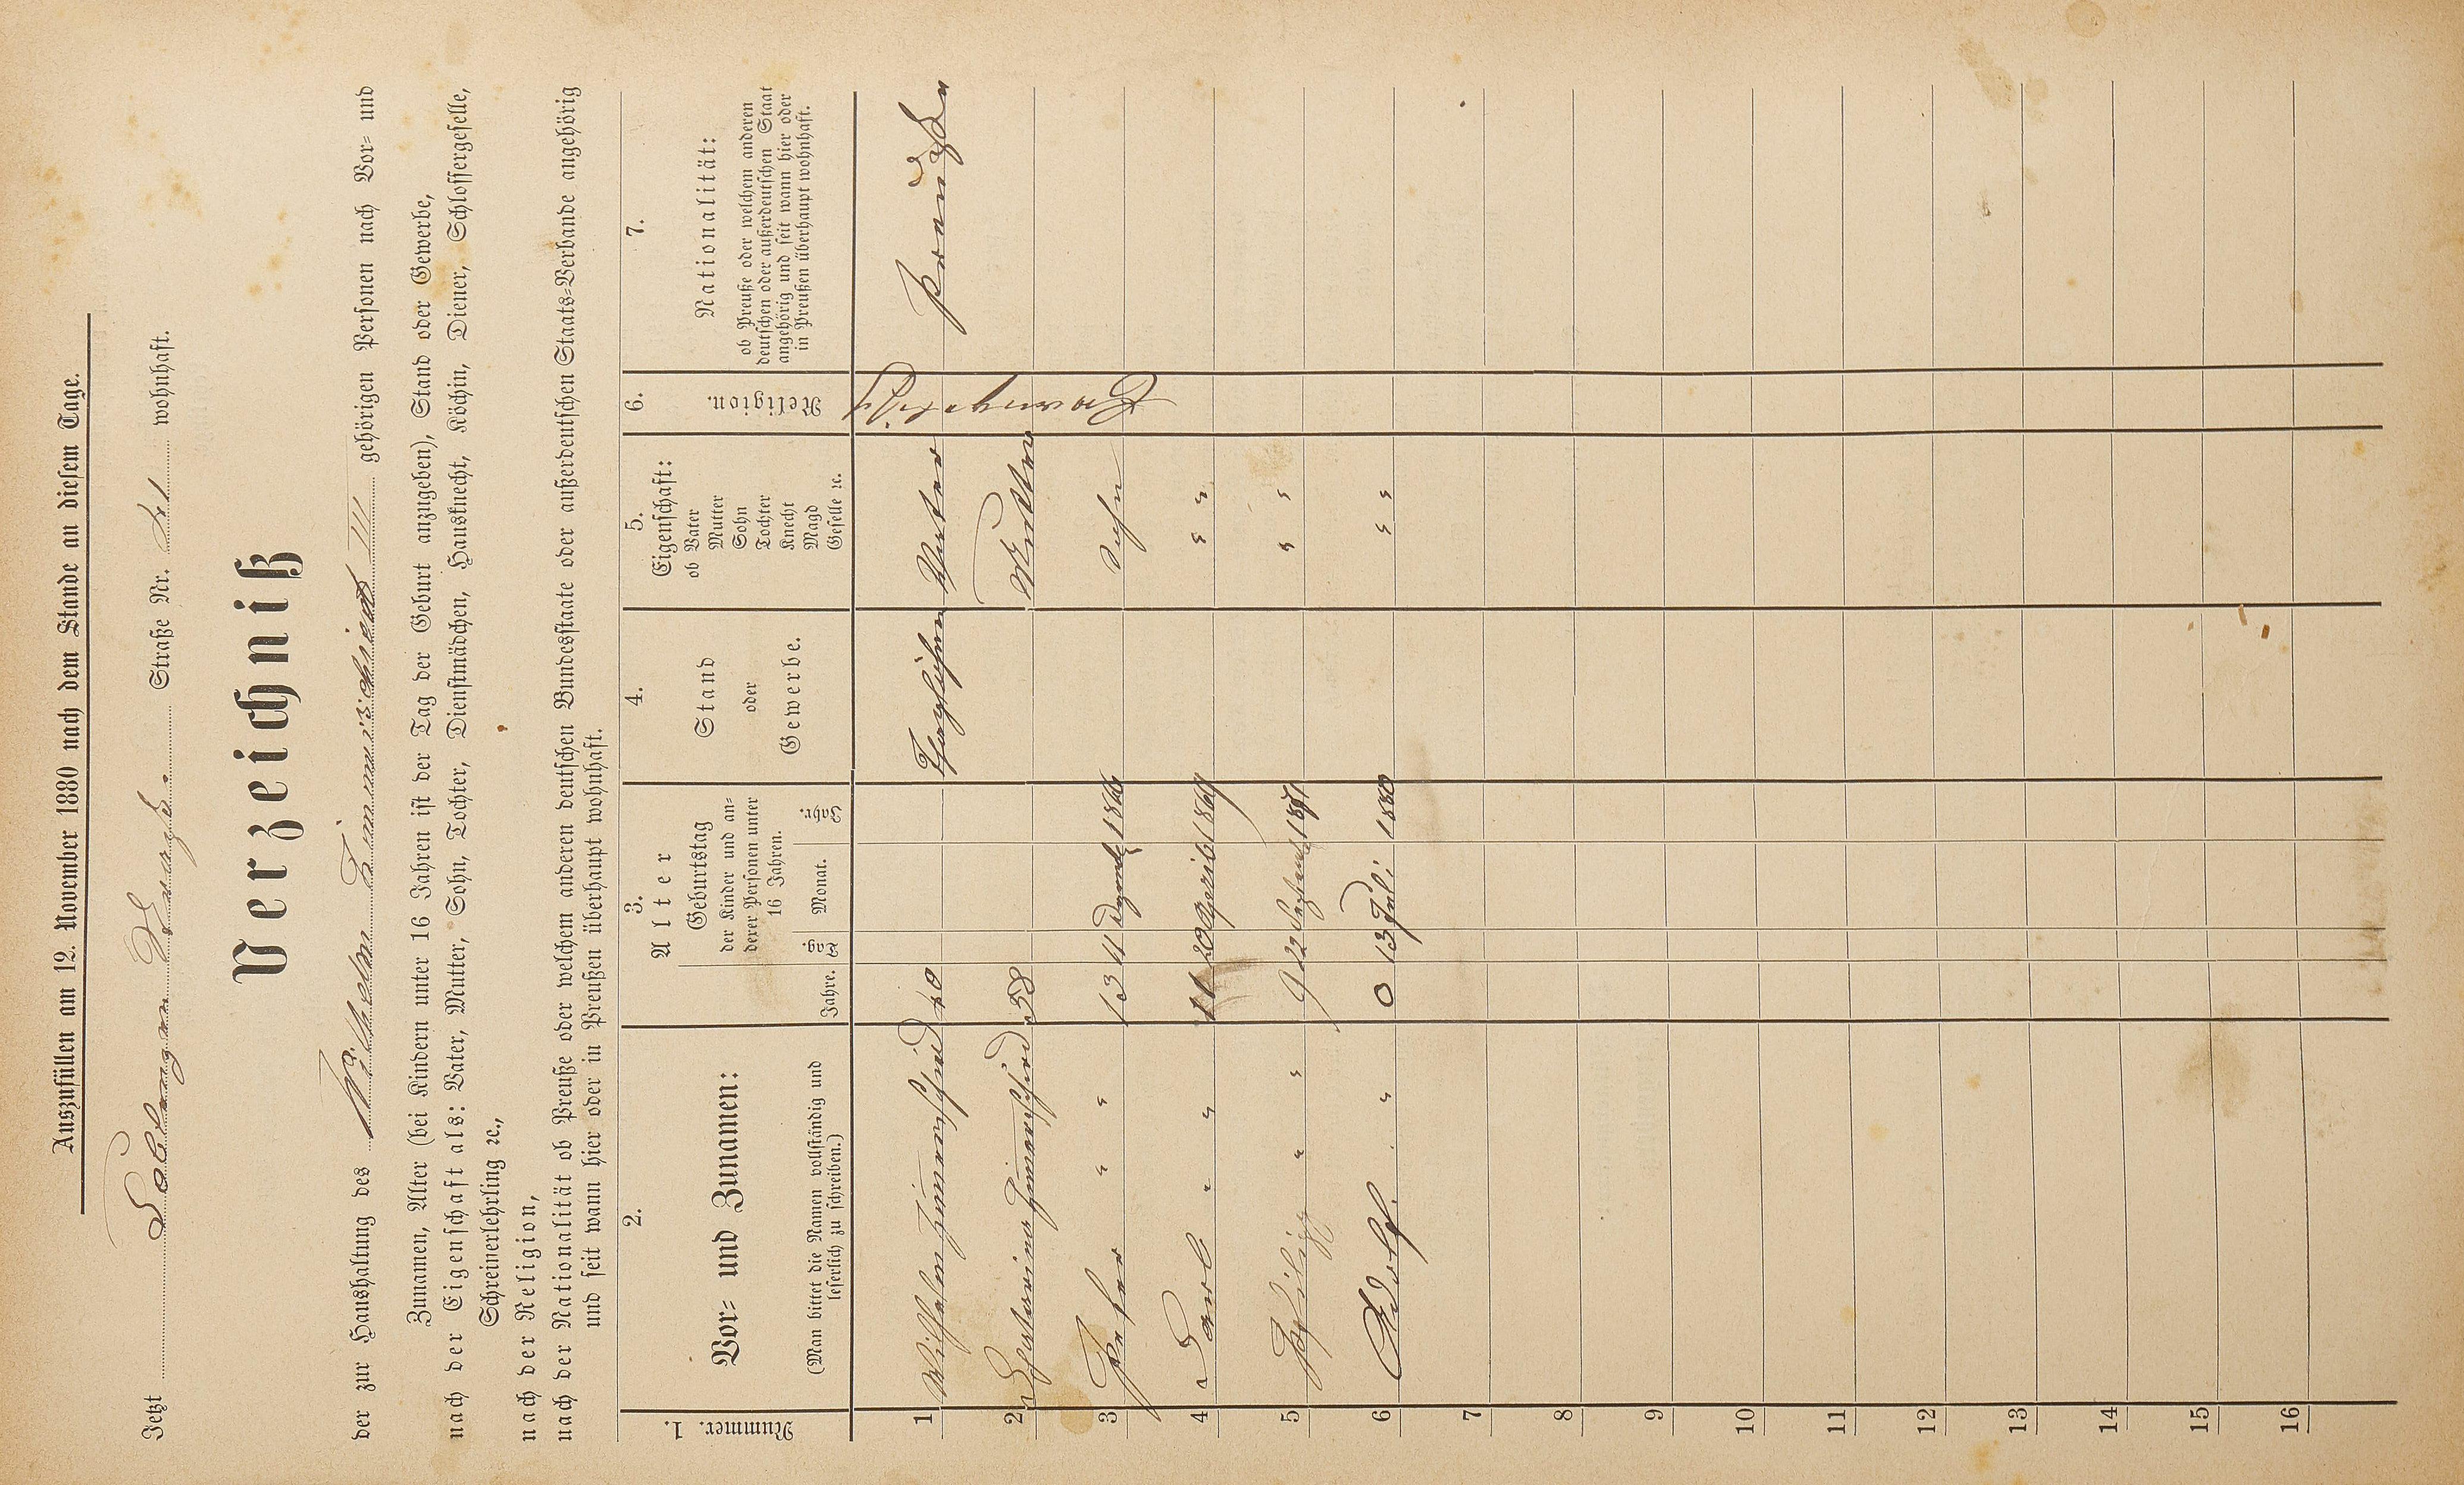 Auszufüllen am 12. November 1880 nach dem Stande an diesem Tage.
Jetzt Coblenzer Straße. Straße Nr. wohnhaft.
Verzeichniß
der zur Haushaltung des Wilhelm Zimmerschied III gehörigen Personen nach Vor= und
Zunamen, Alter (bei Kindern unter 16 Jahren ist der Tag der Geburt anzugeben), Stand oder Gewerbe,
nach der Eigenschaft als: Vater, Mutter, Sohn, Tochter, Dienstmädchen, Hausknecht, Köchin, Diener, Schlossergeselle,
Schreinerlehrling ꝛc.,
nach der Religion,
nach der Nationalität ob Preuße oder welchem anderen deutschen Bundesstaate oder außerdeutschen Staats=Verbande angehörig
und seit wann hier oder in Preußen überhaupt wohnhaft.
1.
Nummer.
2.
Vor= und Zunamen:
(Man bittet die Namen vollständig und
leserlich zu schreiben.)
3.
Alter
Jahre.
Geburtstag
der Kinder und an=
derer Personen unter
16 Jahren.
Tag. Monat. Jahr.
4.
Stand
oder
Gewerbe.
5.
Eigenschaft:
ob Vater
Mutter
Sohn
Tochter
Knecht
Magd
Geselle ꝛc.
6.
Religion.
7.
Nationalität:
ob Preuße oder welchem anderen
deutschen oder außerdeutschen Staat
angehörig und seit wann hier oder
in Preußen überhaupt wohnhaft.
1 Wilhelm Zimmerschied 40 Taglöhner Vater Evangelisch Preuße
2 Zimmerschied 38 Mutter
3 Peter " " 13 11 1866 Sohn
4 Carl " " 11 20 April 1869 " "
5 Philipp " " 9 22 1871 " "
6 Adolf. " 0 13 Juli 1880 " "
7
8
9
10
11
12
13
14
15
16